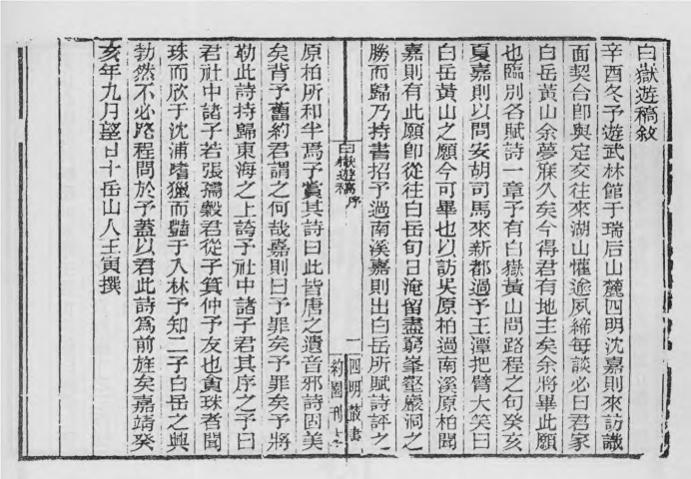 白嶽遊稿敘
辛酉冬予遊武林館于瑞后山麓四明沈嘉則來訪識
面契合卽與定交往來湖山懽逾夙締每談必曰君家
白岳黃山余夢寐久矣今得君有地主矣余將畢此願
也臨別各賦詩一章予有白嶽黃山問路程之句癸亥
夏嘉則以問安胡司馬來新都過予王潭把臂大笑曰
白岳黃山之願今可畢也以訪吳原柏過南溪原柏聞
嘉則有此願卽從往白岳旬日淹留盡窮峯壑巖洞之
勝而歸乃持書招予過南溪嘉則出白岳所賦詩評之
白嶽遊稿序
一
四明叢書
約園刊本
原柏所和半焉予賞其詩曰此皆唐之遺音邪詩固美
矣背予舊約君謂之何哉嘉則曰予罪矣予罪矣予將
勒此詩持歸東海之上誇予社中諸子君其序之予曰
君社中諸子若張孺榖君從子箕仲予友也貪珠者聞
珠而欣于沈浦嗜獵而豔于入林予知二子白岳之興
勃然不必路程問於予蓋以君此詩爲前旌矣嘉靖癸
亥年九月望日十岳山人王寅撰